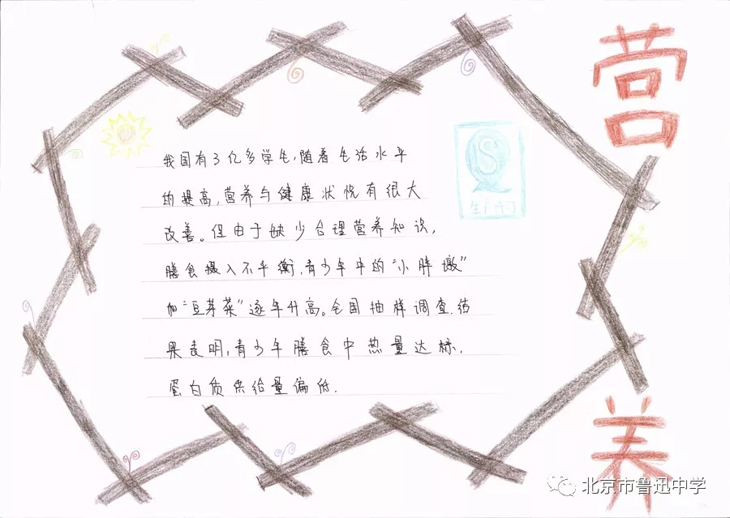 营
养
我国有3亿多学生,随着生活水平
的提高,营养与健康状况有很大
改善。但由于缺少合理营养知识,
膳食摄入不平衡,青少年中的“小胖墩”
和“豆芽菜”逐年升高。全国抽样调查结
果表明,青少年膳食中热量达标,
蛋白质供给量偏低.
S
北京市鲁迅中学